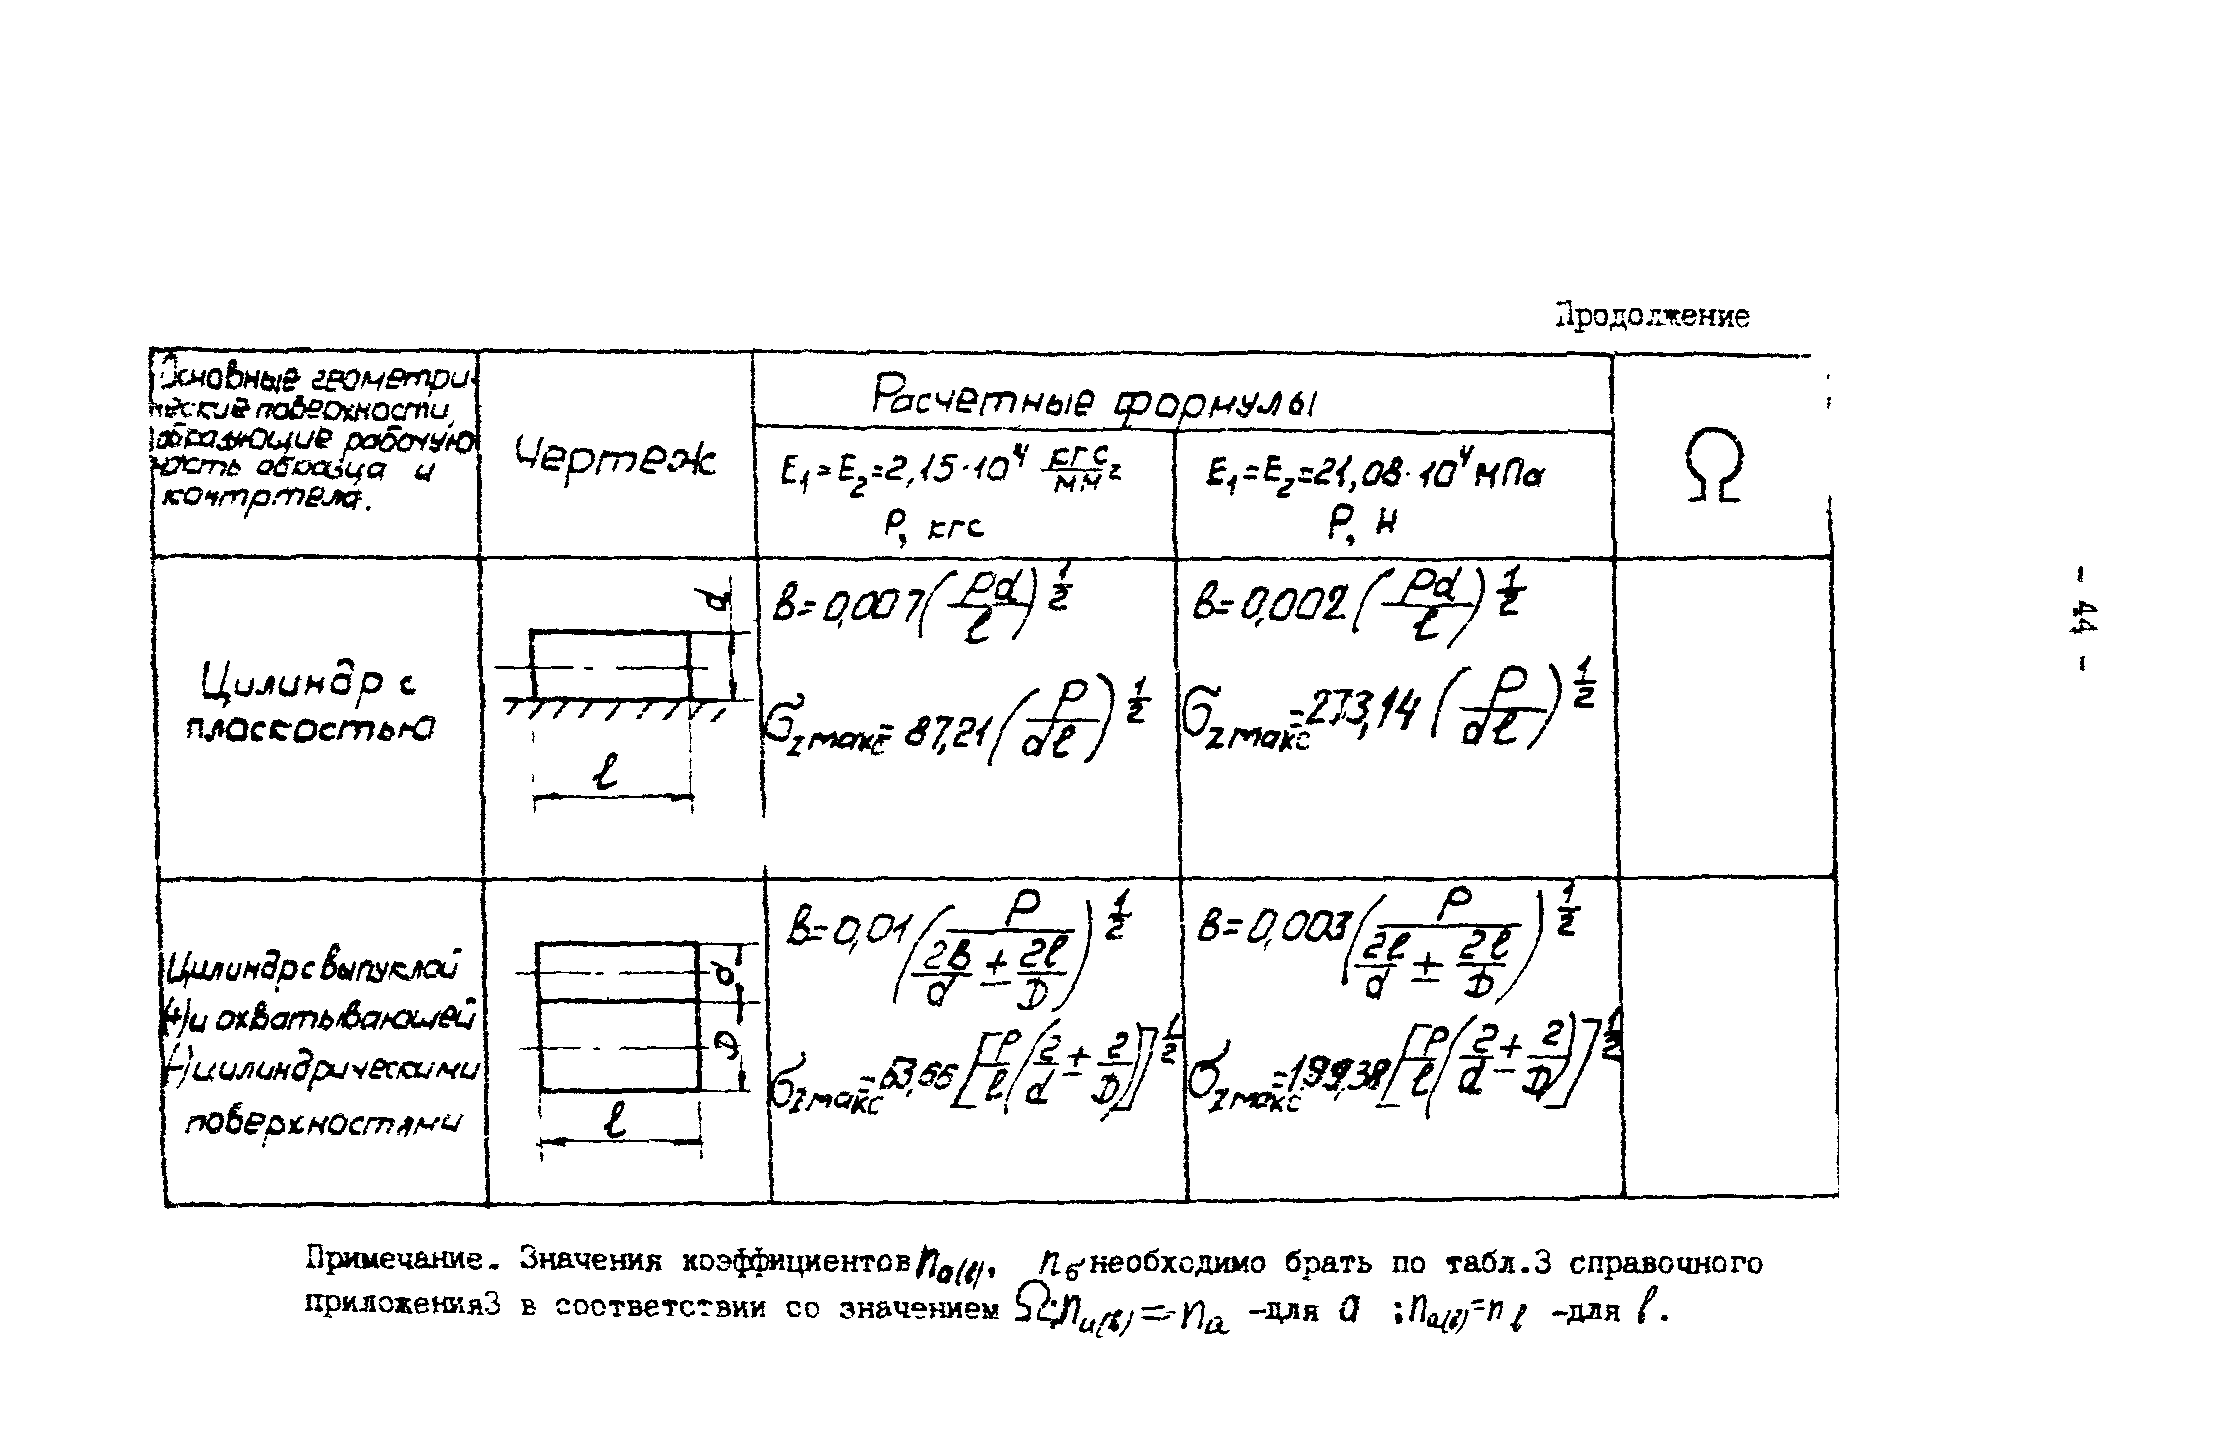 Продолжение
Основные геометри-
ческие поверхности,
образующие рабочую
ность образца и
контртела.
Чертеж
Расчетные формулы
E₁=E₂=2,15·10⁴ кгс/мм²
P, кгс
E₁=E₂=21,08·10⁴ МПа
P, Н
Ω
Цилиндр с
плоскостью
d
l
в=0,007(Pd/l)^1/2
σz макс=87,21(P/dl)^1/2
в=0,002(Pd/l)^1/2
σz макс=273,14(P/dl)^1/2
Цилиндр с выпуклой
(+) и охватывающей
(-) цилиндрическими
поверхностями
d
D
l
в=0,01(P/(2в/d ± 2l/D))^1/2
σz макс=63,66[P/l(2/d ± 2/D)]^1/2
в=0,003(P/(2l/d ± 2l/D))^1/2
σz макс=199,38[P/l(2/d ± 2/D)]^1/2
Примечание. Значения коэффициентов nа(в), nσ необходимо брать по табл.3 справочного
приложения3 в соответствии со значением Ω; nа(в)=nа -для а ; nа(в)=n l -для l.
- 44 -